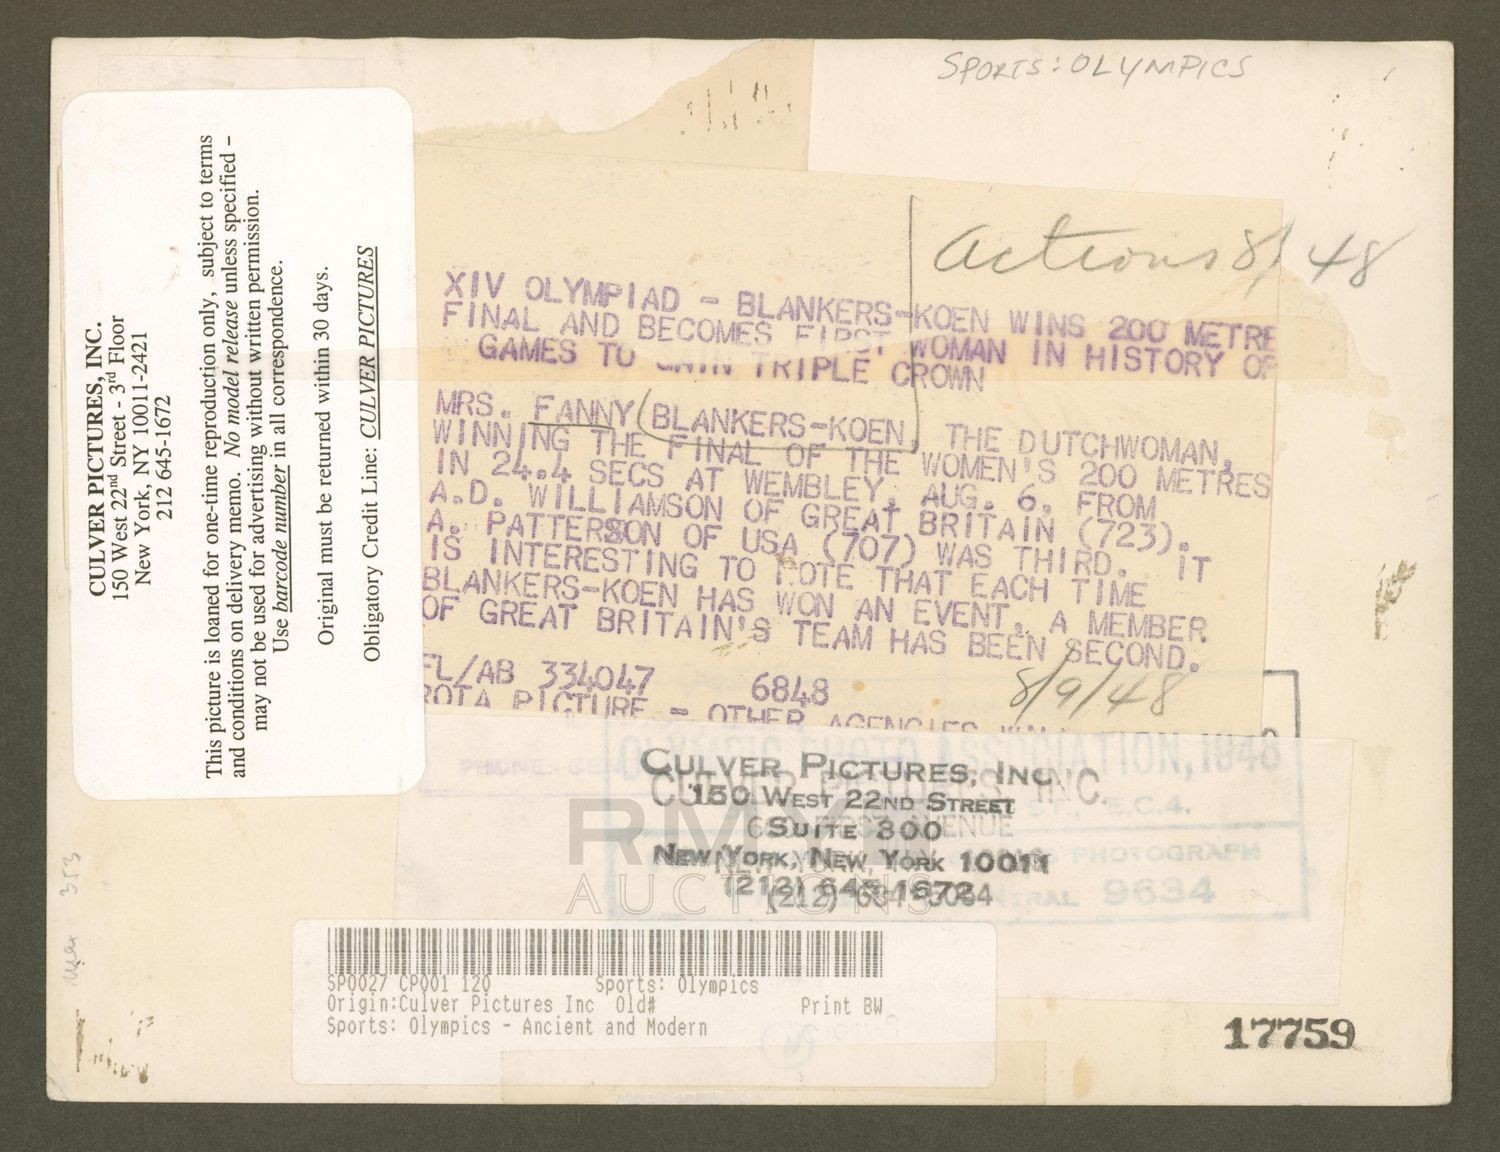 SPORTS: OLYMPICS
Actions 8/48
CULVER PICTURES, INC.
150 West 22nd Street - 3rd Floor
New York, NY 10011-2421
212 645-1672
This picture is loaned for one-time reproduction only, subject to terms
and conditions on delivery memo. No model release unless specified -
may not be used for advertising without written permission.
Use barcode number in all correspondence.
Original must be returned within 30 days.
Obligatory Credit Line: CULVER PICTURES
XIV OLYMPIAD - BLANKERS-KOEN WINS 200 METRE
FINAL AND BECOMES FIRST WOMAN IN HISTORY OF
GAMES TO GAIN TRIPLE CROWN
MRS. FANNY BLANKERS-KOEN, THE DUTCHWOMAN,
WINNING THE FINAL OF THE WOMEN'S 200 METRES
IN 24.4 SECS AT WEMBLEY, AUG. 6, FROM
A.D. WILLIAMSON OF GREAT BRITAIN (723).
A. PATTERSON OF USA (707) WAS THIRD. IT
IS INTERESTING TO NOTE THAT EACH TIME
BLANKERS-KOEN HAS WON AN EVENT, A MEMBER
OF GREAT BRITAIN'S TEAM HAS BEEN SECOND.
FL/AB 334047 6848
8/9/48
ROTA PICTURE - OTHER AGENCIES
OLYMPIC PHOTO ASSOCIATION, 1948
ST., E.C.4.
PHOTOGRAPH
CENTRAL 9634
PHONE
CULVER PICTURES, INC.
150 WEST 22ND STREET
SUITE 300
NEW YORK, NEW YORK 10011
(212) 645-1672
CULVER PICTURES, INC.
AVENUE
RMY
AUCTIONS
SP0027 CP001 120 Sports: Olympics
Origin:Culver Pictures Inc Old# Print BW
Sports: Olympics - Ancient and Modern
17759
353